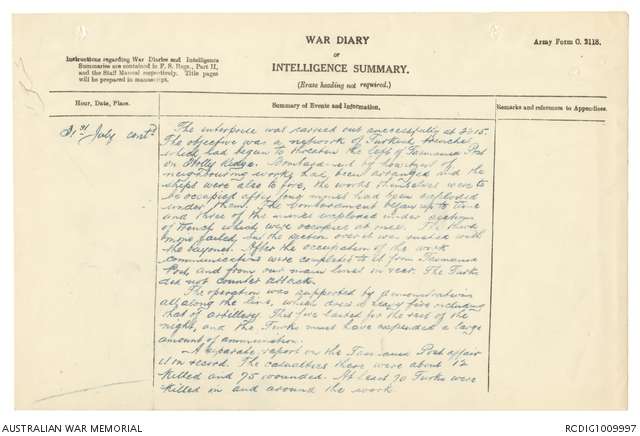 WAR DIARY
OR
INTELLIGENCE SUMMARY.
(Erase heading not required.)
Army Form C. 2118.
Instructions regarding War Diaries and Intelligence
Summaries are contained in F. S. Regs., Part II,
and the Staff Manual respectively. Title pages
will be prepared in manuscript.
Hour, Date, Place.
Summary of Events and Information.
Remarks and references to Appendices.
31st July contd
The enterprise was carried out successfully at 2215.
The objective was a network of Turkish trenches
which had begun to threaten the left of Tasmania Post
on Holly Ridge. Bombardment by howitzers of
neighbouring works had been arranged and the
ships were also to fire, the works themselves were to
be occupied after four mines had been exploded
under them. The bombardment began up to time
and three of the mines exploded under sections
of trench which were occupied at once. The third
mine failed, but the section over it was rushed with
the bayonet. After the occupation of the work
communications were completed to it from Tasmania
Post and from our main lines in rear. The Turks
did not counter attack.
The operation was supported by demonstrations
all along the line, which drew a heavy fire including
that of artillery. This fire lasted for the rest of the
night, and the Turks must have expended a large
amount of ammunition.
A separate report on the Tasmania Post affair
is on record. The casualties there were about 12
killed and 75 wounded. At least 70 Turks were
killed in and around the work.
AUSTRALIAN WAR MEMORIAL
RCDIG1009997